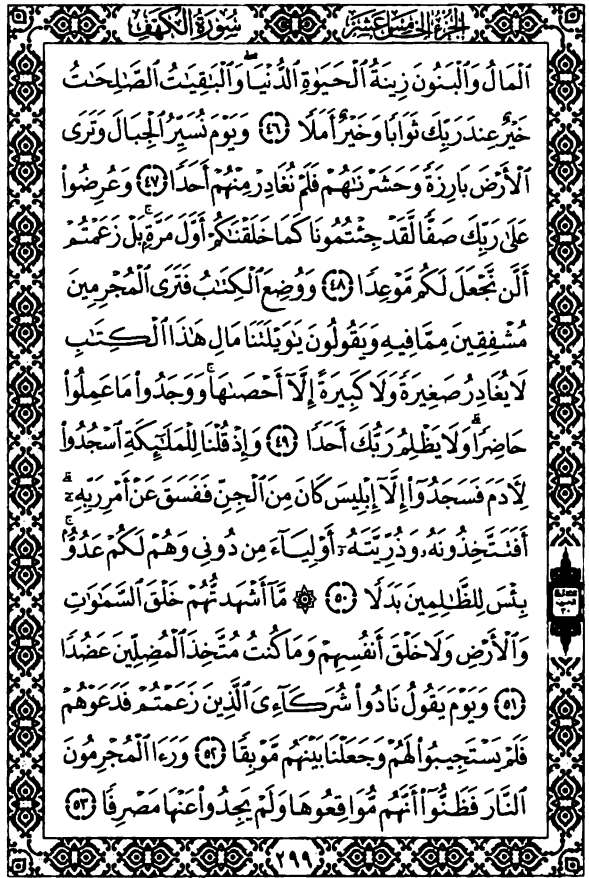 الجزء الخامس عشر سورة الكهف
ٱلْمَالُ وَٱلْبَنُونَ زِينَةُ ٱلْحَيَوٰةِ ٱلدُّنْيَا ۖ وَٱلْبَٰقِيَٰتُ ٱلصَّٰلِحَٰتُ
خَيْرٌ عِندَ رَبِّكَ ثَوَابًا وَخَيْرٌ أَمَلًا ٤٦ وَيَوْمَ نُسَيِّرُ ٱلْجِبَالَ وَتَرَى
ٱلْأَرْضَ بَارِزَةً وَحَشَرْنَٰهُمْ فَلَمْ نُغَادِرْ مِنْهُمْ أَحَدًا ٤٧ وَعُرِضُوا۟
عَلَىٰ رَبِّكَ صَفًّا لَّقَدْ جِئْتُمُونَا كَمَا خَلَقْنَٰكُمْ أَوَّلَ مَرَّةٍۭ ۚ بَلْ زَعَمْتُمْ
أَلَّن نَّجْعَلَ لَكُم مَّوْعِدًا ٤٨ وَوُضِعَ ٱلْكِتَٰبُ فَتَرَى ٱلْمُجْرِمِينَ
مُشْفِقِينَ مِمَّا فِيهِ وَيَقُولُونَ يَٰوَيْلَتَنَا مَالِ هَٰذَا ٱلْكِتَٰبِ
لَا يُغَادِرُ صَغِيرَةً وَلَا كَبِيرَةً إِلَّآ أَحْصَىٰهَا ۚ وَوَجَدُوا۟ مَا عَمِلُوا۟
حَاضِرًا ۗ وَلَا يَظْلِمُ رَبُّكَ أَحَدًا ٤٩ وَإِذْ قُلْنَا لِلْمَلَٰٓئِكَةِ ٱسْجُدُوا۟
لِءَادَمَ فَسَجَدُوٓا۟ إِلَّآ إِبْلِيسَ كَانَ مِنَ ٱلْجِنِّ فَفَسَقَ عَنْ أَمْرِ رَبِّهِۦٓ ۗ
أَفَتَتَّخِذُونَهُۥ وَذُرِّيَّتَهُۥٓ أَوْلِيَآءَ مِن دُونِى وَهُمْ لَكُمْ عَدُوٌّۢ ۚ
بِئْسَ لِلظَّٰلِمِينَ بَدَلًا ٥٠ ۞ مَّآ أَشْهَدتُّهُمْ خَلْقَ ٱلسَّمَٰوَٰتِ
وَٱلْأَرْضِ وَلَا خَلْقَ أَنفُسِهِمْ وَمَا كُنتُ مُتَّخِذَ ٱلْمُضِلِّينَ عَضُدًا
٥١ وَيَوْمَ يَقُولُ نَادُوا۟ شُرَكَآءِىَ ٱلَّذِينَ زَعَمْتُمْ فَدَعَوْهُمْ
فَلَمْ يَسْتَجِيبُوا۟ لَهُمْ وَجَعَلْنَا بَيْنَهُم مَّوْبِقًا ٥٢ وَرَءَا ٱلْمُجْرِمُونَ
ٱلنَّارَ فَظَنُّوٓا۟ أَنَّهُم مُّوَاقِعُوهَا وَلَمْ يَجِدُوا۟ عَنْهَا مَصْرِفًا ٥٣
٢٩٩